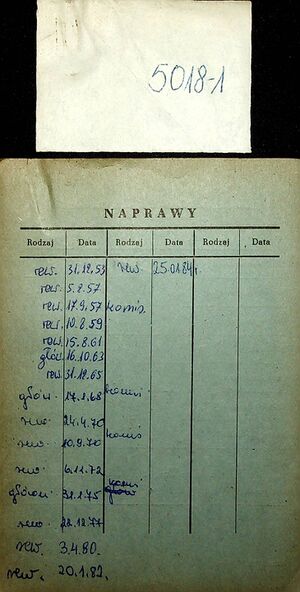 5018-1
NAPRAWY
Rodzaj Data Rodzaj Data Rodzaj Data
rew. 31.12.53 rew. 25.01.84 r.
rew. 5.8.57
rew. 17.9.57 komis.
rew. 10.8.59
rew. 15.8.61
głów. 16.10.63
rew. 31.12.65
głów. 17.1.68 komis
rew. 24.4.70
rew. 10.9.70 komis
rew. 6.11.72
31.1.75 komis
rew. 22.12.77
rew. 3.4.80.
rew. 20.1.82.